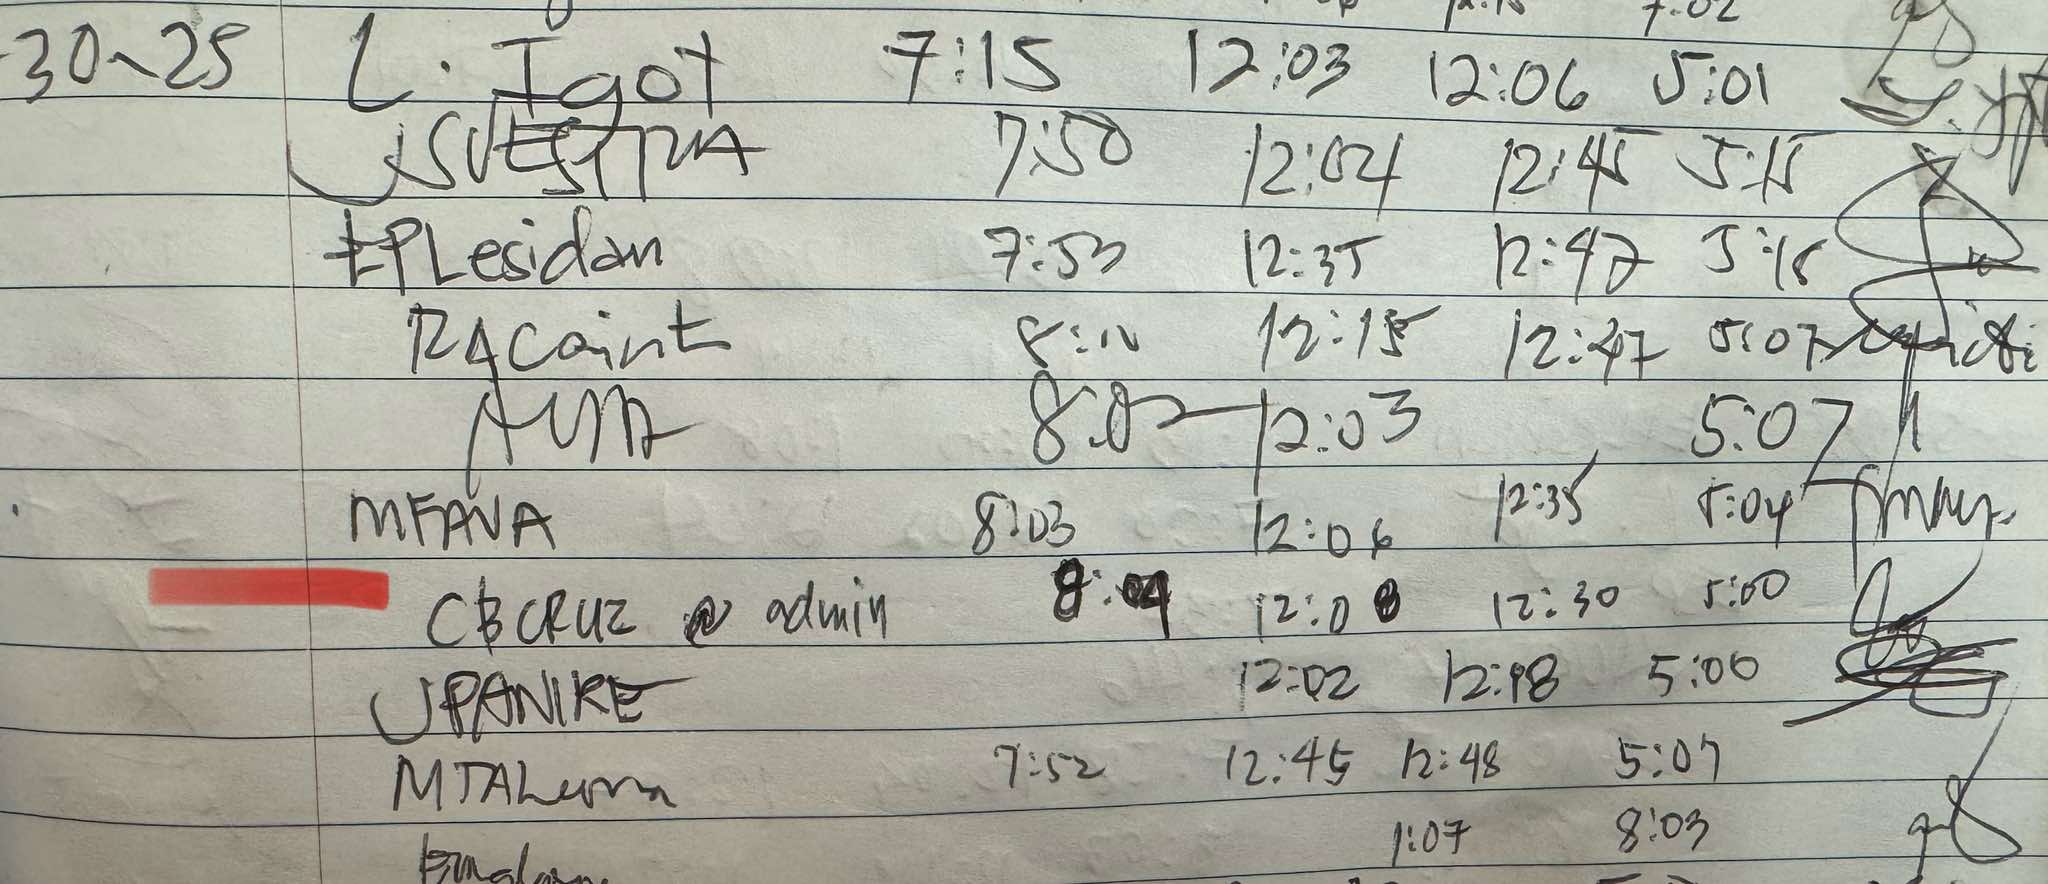 7:02
30-25 L. Igot 7:15 12:03 12:06 5:01
JSVESTRA 7:50 12:04 12:45 5:15
EPLesidan 7:53 12:35 12:47 5:15
RACaint 12:15 12:47 5:07
12:03 5:07
MFAVA 8:03 12:06 12:35 5:04
CBCRUZ @ admin 8:04 12:08 12:30 5:00
JPANIKE 12:02 12:18 5:00
MTALerma 7:52 12:45 12:48 5:07
1:07 8:03